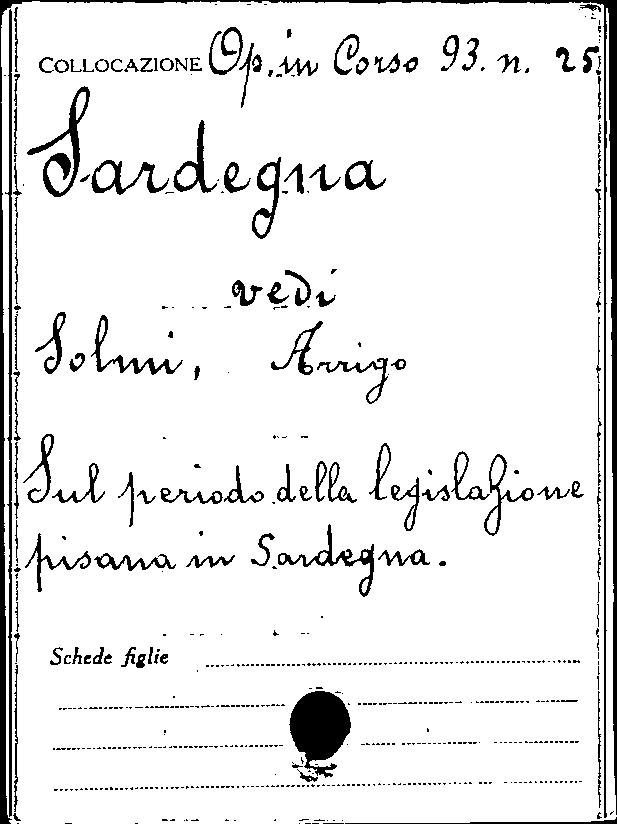 COLLOCAZIONE Op. in Corso 93. n. 25
Sardegna
vedi
Solmi, Arrigo
Sul periodo della legislazione
pisana in Sardegna.
Schede figlie